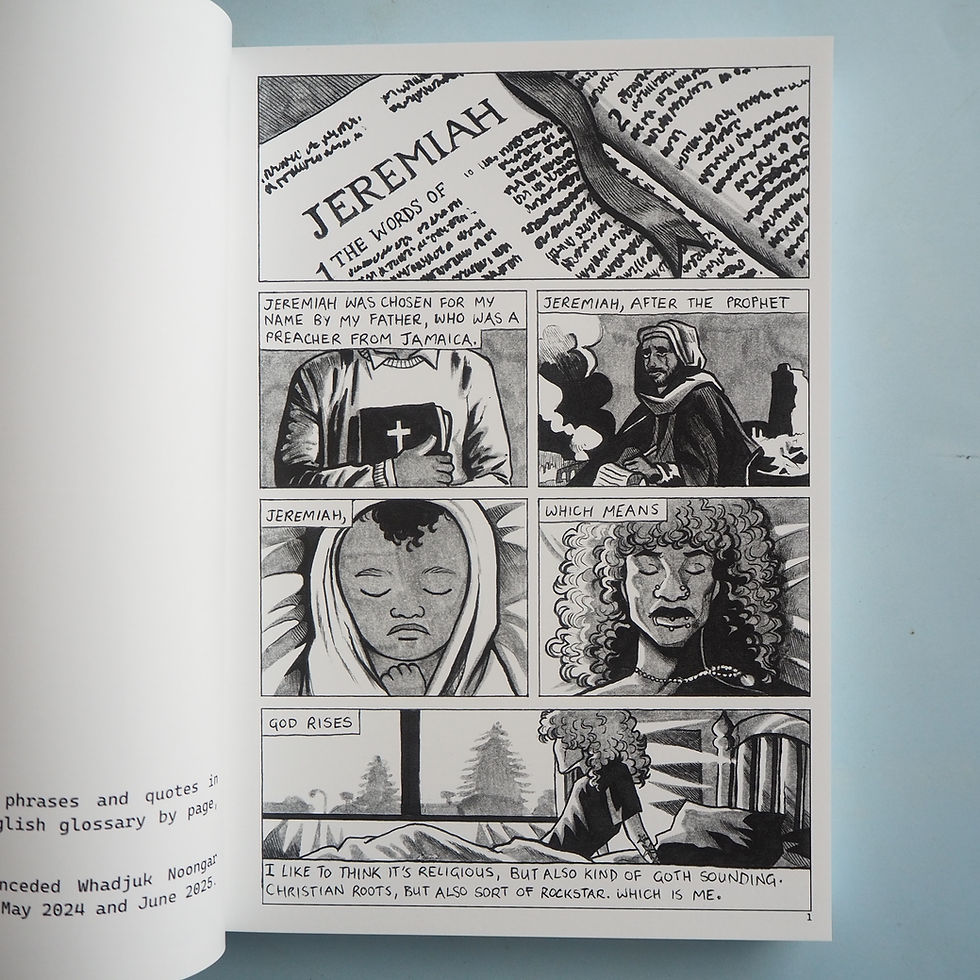 phrases and quotes in
glish glossary by page,
nceded Whadjuk Noongar
May 2024 and June 2025.
JEREMIAH
1 THE WORDS OF
2
JEREMIAH WAS CHOSEN FOR MY
NAME BY MY FATHER, WHO WAS A
PREACHER FROM JAMAICA.
JEREMIAH, AFTER THE PROPHET
JEREMIAH,
WHICH MEANS
GOD RISES
I LIKE TO THINK IT'S RELIGIOUS, BUT ALSO KIND OF GOTH SOUNDING.
CHRISTIAN ROOTS, BUT ALSO SORT OF ROCKSTAR. WHICH IS ME.
1